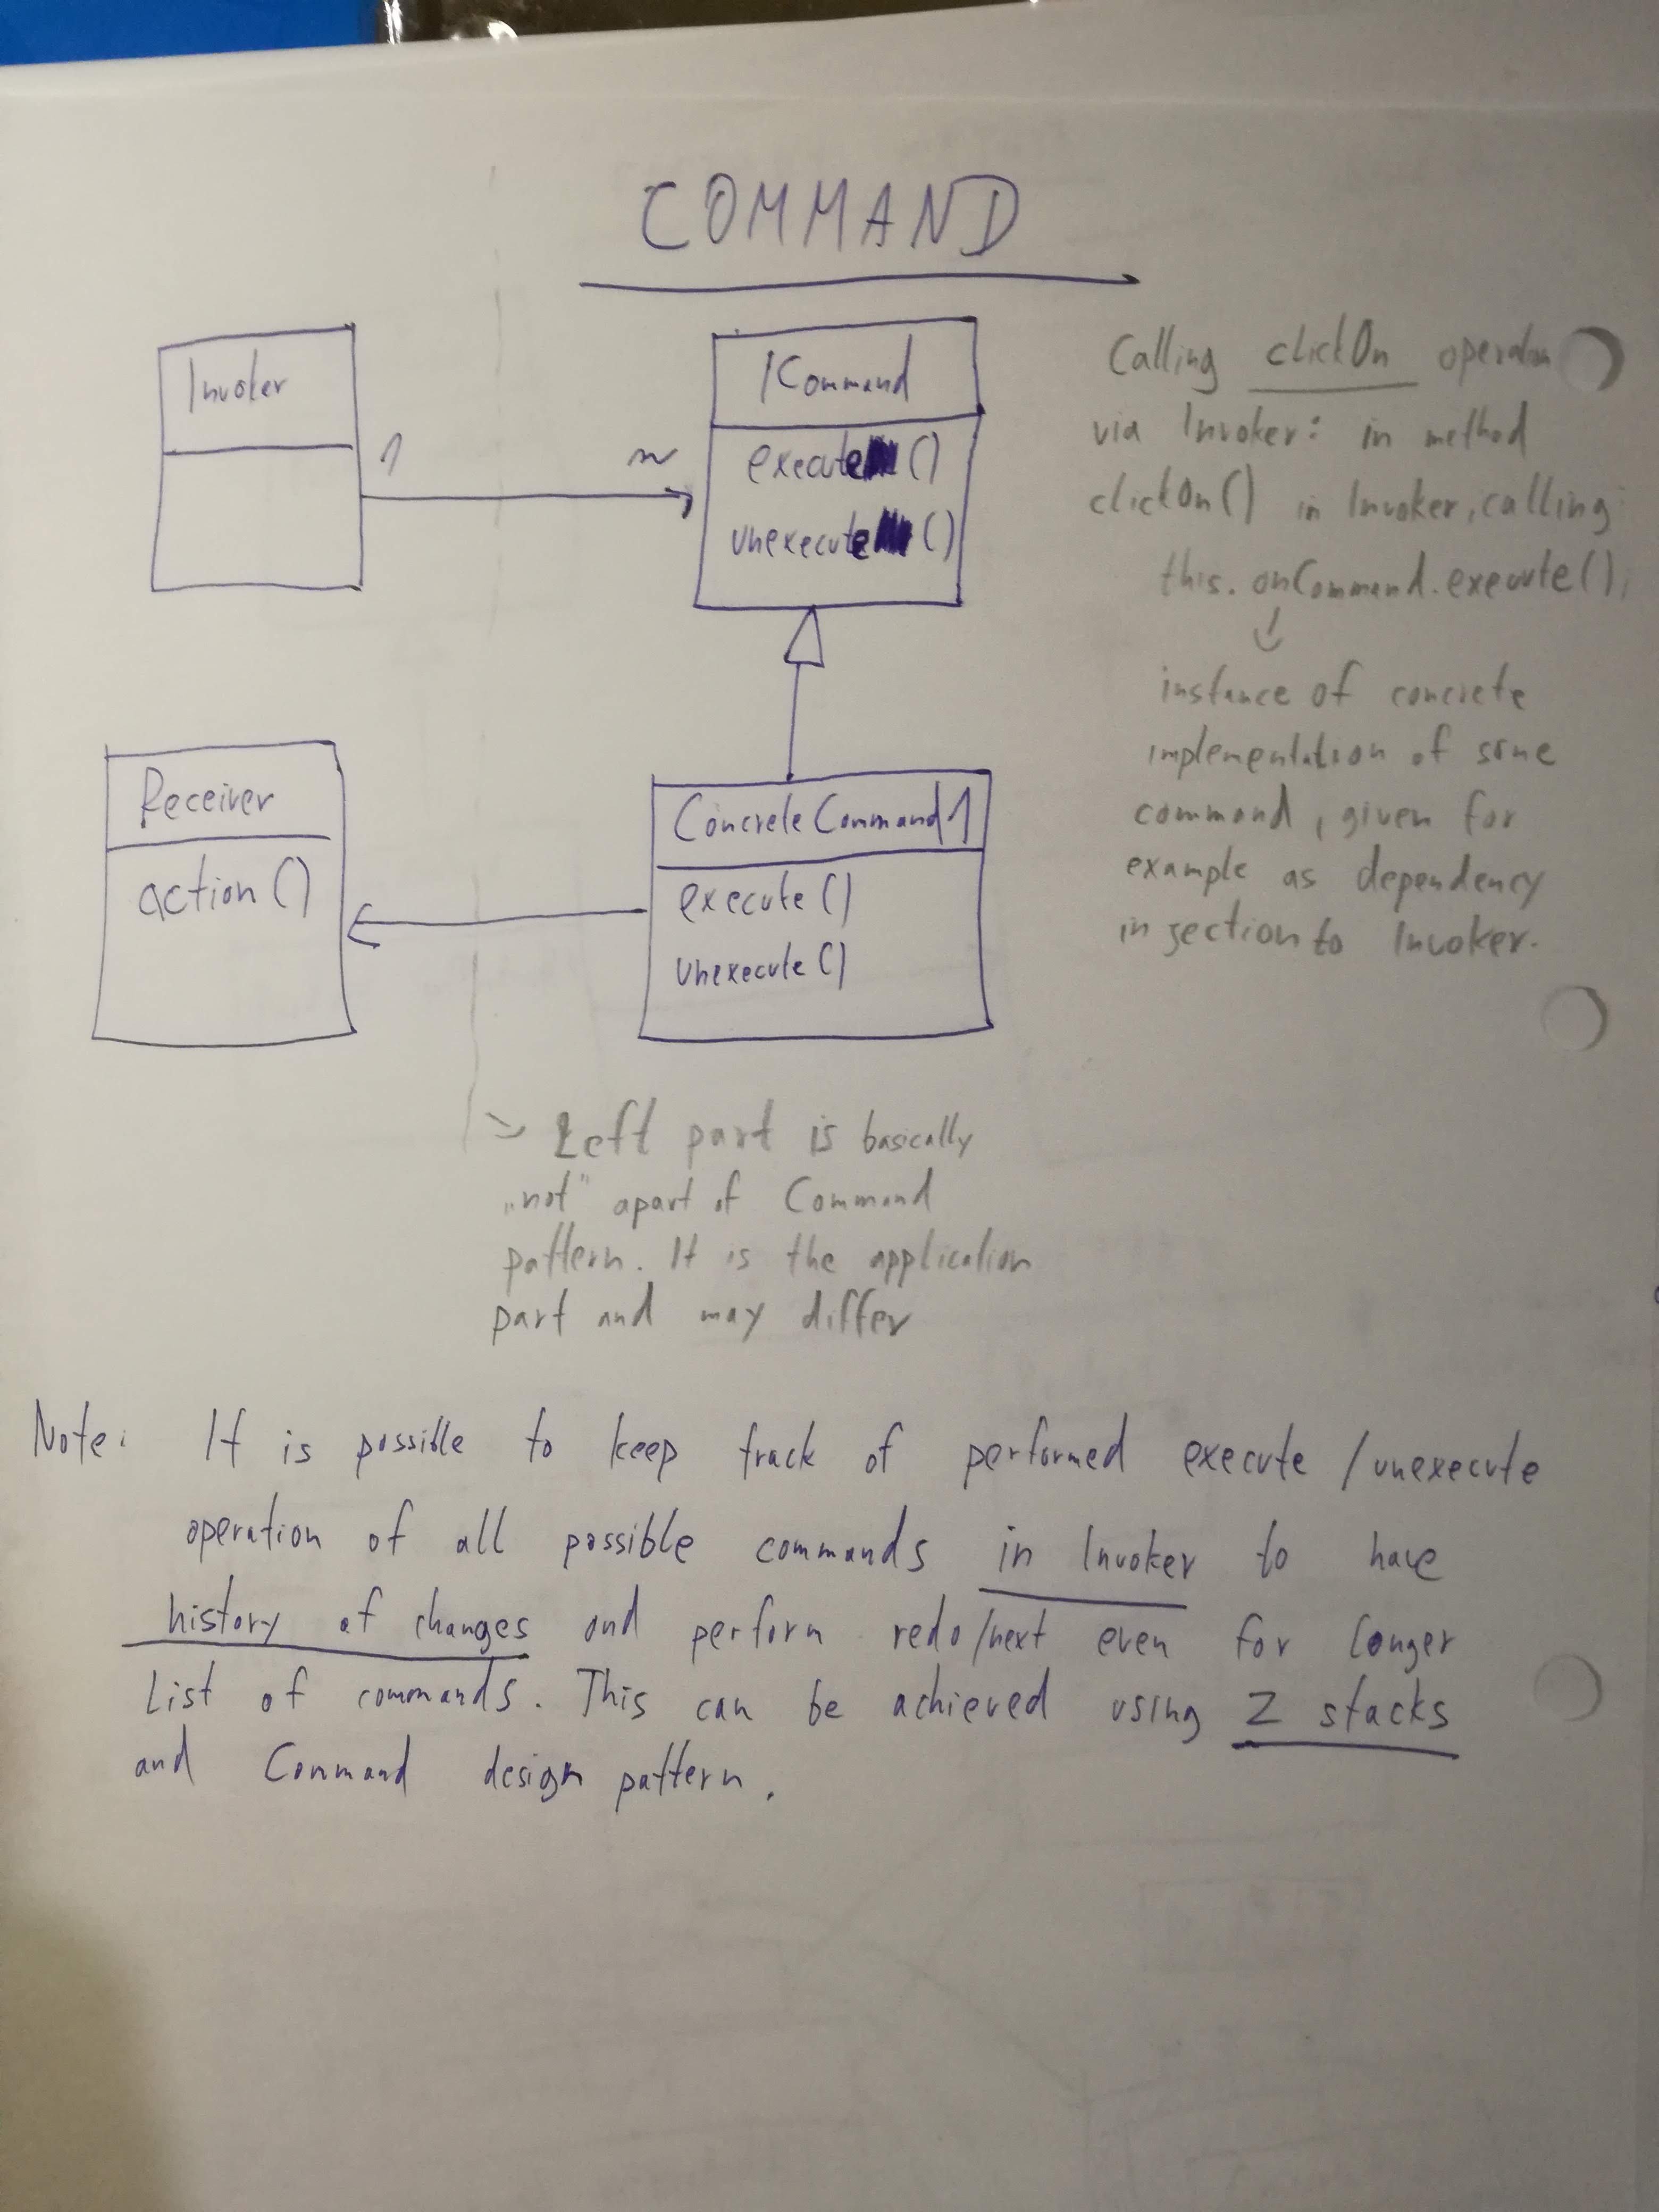 COMMAND
Invoker
1
n
ICommand
execute()
unexecute()
Calling clickOn operation
via Invoker: in method
clickOn() in Invoker, calling
this.onCommand.execute();
instance of concrete
implementation of some
command, given for
example as dependency
injection to Invoker.
Receiver
action()
ConcreteCommand1
execute()
unexecute()
Left part is basically
„not" apart of Command
pattern. It is the application
part and may differ
Note: It is possible to keep track of performed execute/unexecute
operation of all possible commands in Invoker to have
history of changes and perform redo/next even for longer
List of commands. This can be achieved using 2 stacks
and Command design pattern.